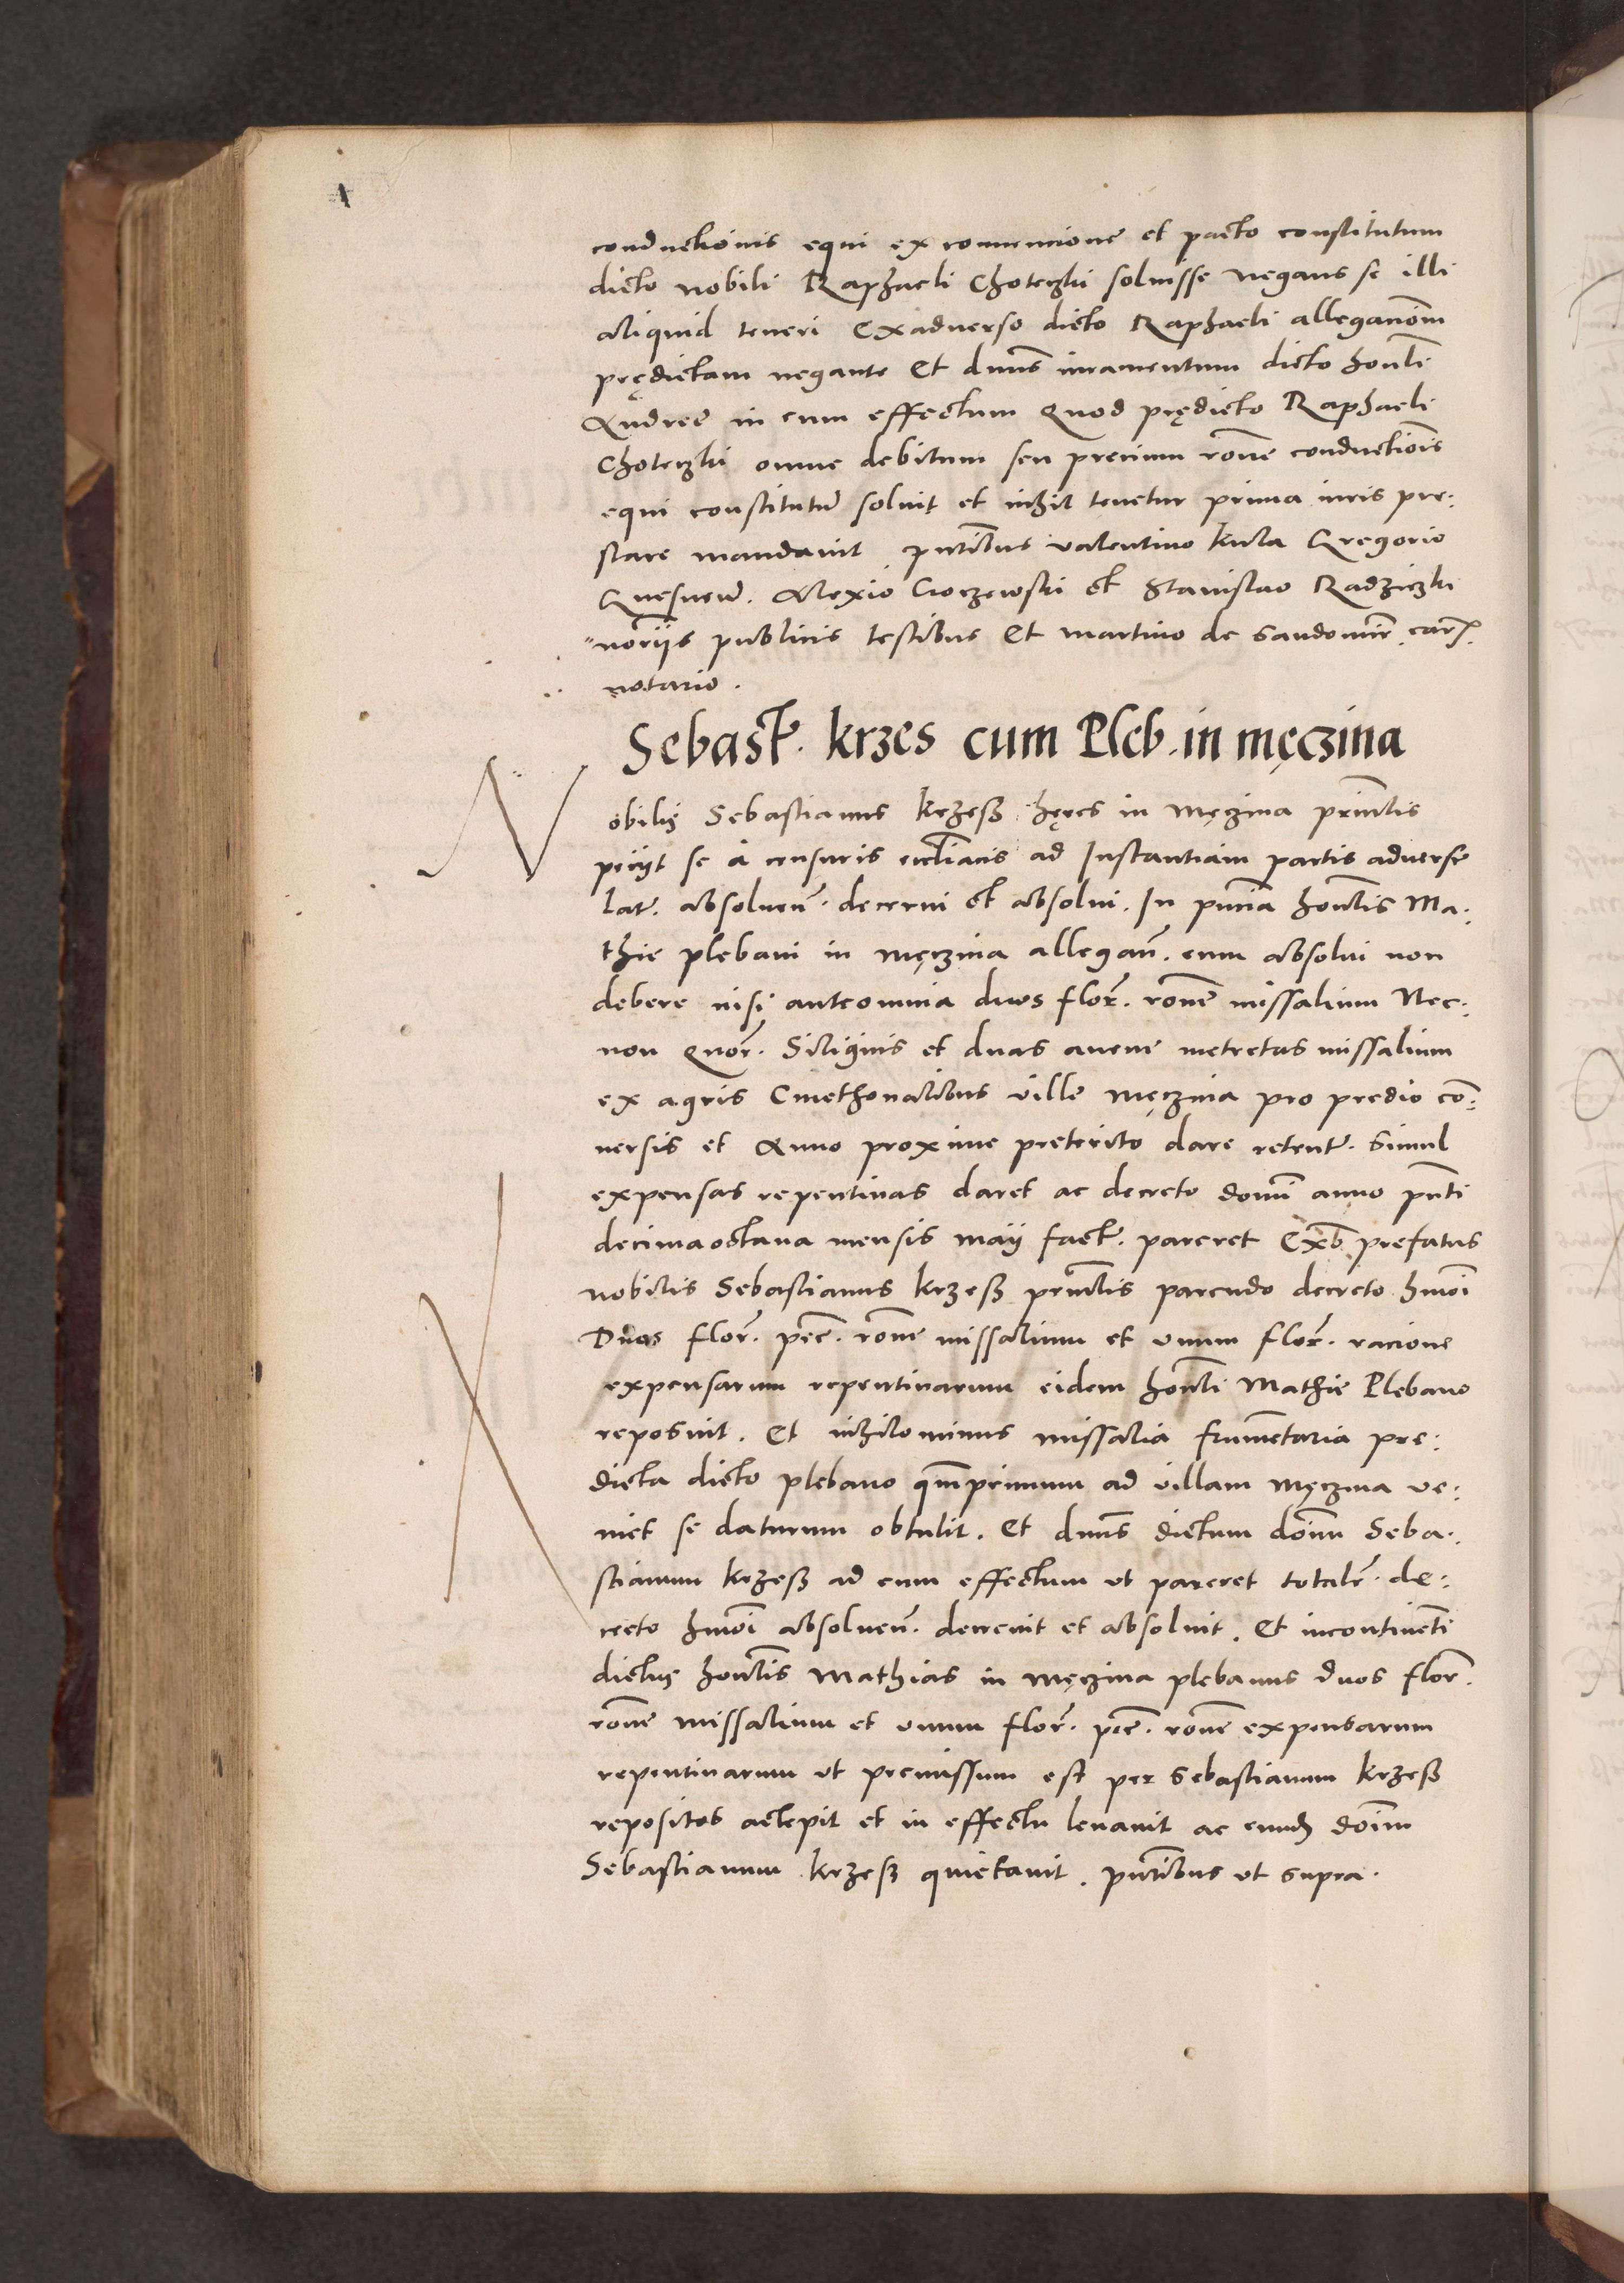 conductionis equi ex conuencione et pacto constitutum
dicto nobili Raphaeli Choteczki soluisse negans se illi
aliquid teneri Exaduerso dicto Raphaeli allęganõm
prędictam negante Et dnus iuramentum dicto honli
Andree in eum effectum Quod prędicto Raphaeli
Choteczki omne debitum seu precium rõne conductiõis
equi constitutũ soluit et nihil tenetur prima iuris pre:
stare mandauit pñtibus valentino kula Gregorio
Alexio et Stanislao Radziczki
noriis publicis testibus Et martino de Sandomir
notario.
Sebast. krzes cum Pleb. in męczina
Nobilis Sebastianus krzesß hęres in męczina prinlis
peciit se à censuris eccliacis ad Instantiam partis aduerse
lat. absoluen̄. decerni et absolui. In pñcia honlis Ma:
thie plebani in męczina allegan̄. eum absolui non
debere nisi anteomnia duos flor̄. rõne missalium Nec:
non quor̄. Siliginis et duas auene metretas missalium
ex agris Cmethonalibus ville męczina pro predio cõ:
uersis et Anno proxime preterito dare retent. simul
expensas repentinas daret ac decreto domĩ anno pñti
decimaoctaua mensis maij fact. pareret Exb prefatus
nobilis Sebastianus krzesß prinlis parendo decreto hmõi
Duos flor̄. pec̄. rõne missalium et vnum flor̄. racione
expensarum repentinarum eidem honli Mathie Plebano
reposuit. Et nihilominus missalia frumẽtaria pre:
dicta dicto plebano qm̃primum ad villam męczina ve:
niet se daturum obtulit. Et dnus dictum dõnu Seba:
stianum krzesß ad eum effectum vt pareret totalr̄. de:
creto hmõi absoluen̄. decreuit et absoluit. Et incontinẽti
dictus honlis Mathias in męczina plebanus duos flor̄.
rõne missalium et vnum flor̄. pec̄. rõne expensarum
repentinarum vt premissum est per Sebastianum krzesß
repositos accepit et in effectu leuauit ac eund dõnm
Sebastianum krzesß quietauit. pñtibus vt supra.